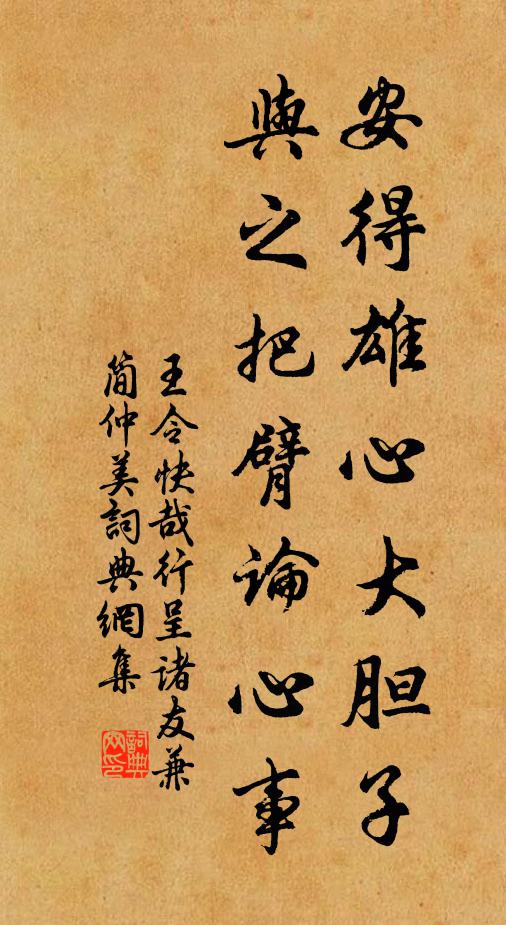 安得雄心大胆子
與之把臂論心事
王令快哉行呈諸友兼
簡仲美詞典網集
詞典網印